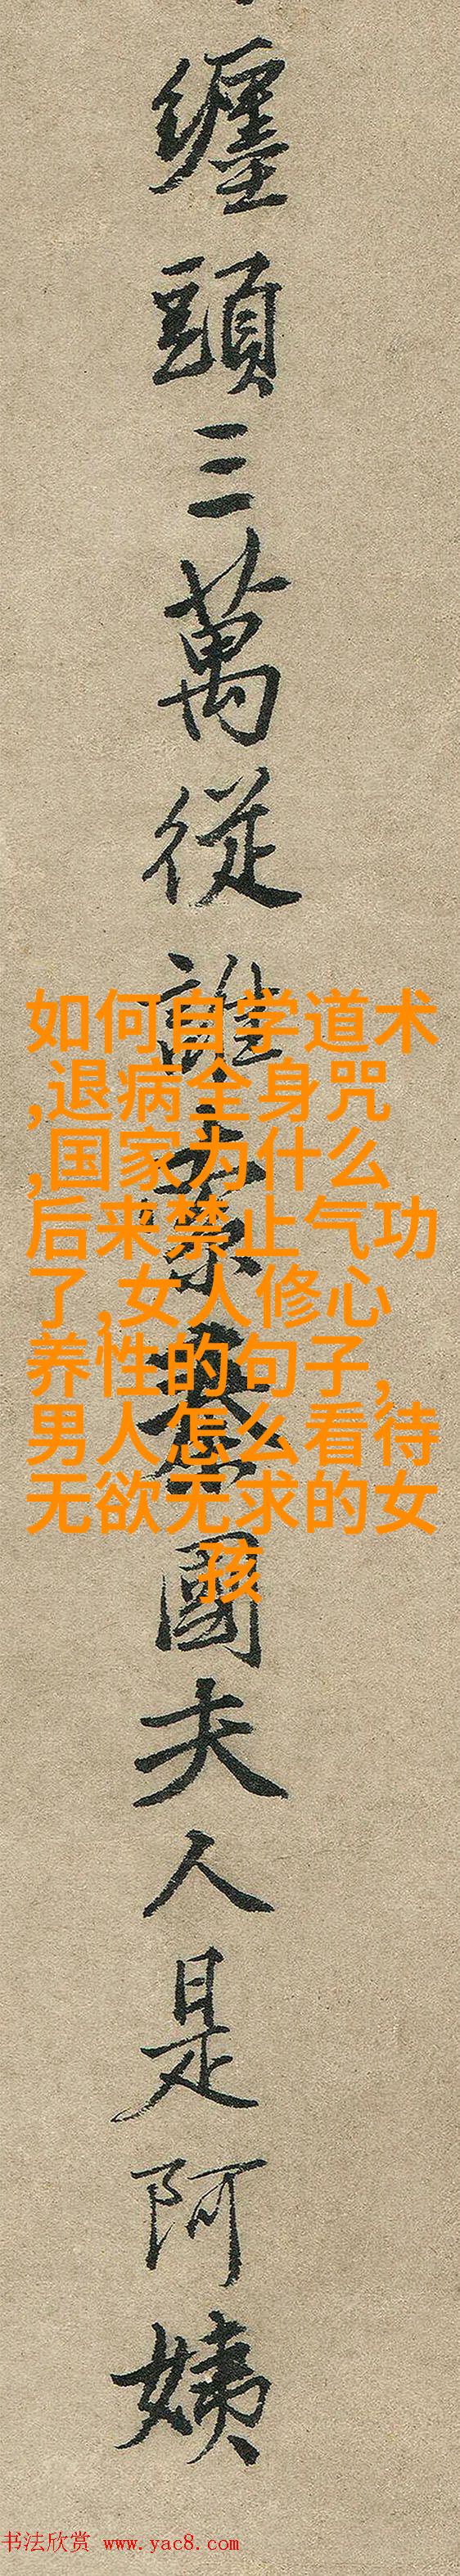 纏頭三萬從誰索秦國夫人是阿姨
如何自学道术
,退病全身咒
,国家为什么
后来禁止气功
了,女人修心
养性的句子,
男人怎么看待
无欲无求的女
孩
书法欣赏 www.yac8.com